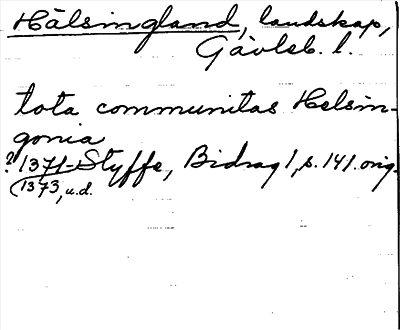 Hälsingland, landskap,
Gävleb. l.
tota communitas Helsin-
gonia
? 1371 Styffe, Bidrag 1, s. 141. orig.
(1373, u.d.